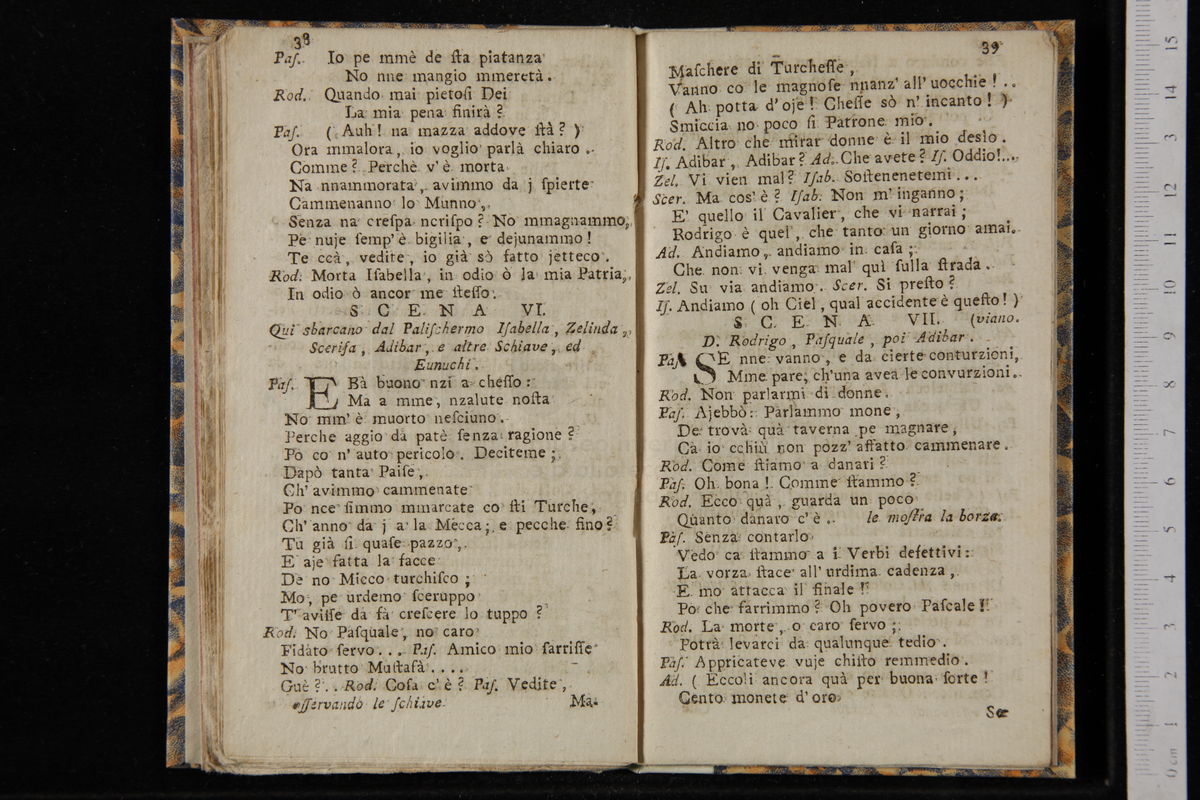 38
Paſ. Io pe mmè de ſta piatanza
No nne mangio mmeretà.
Rod. Quando mai pietoſi Dei
La mia pena finirà?
Paſ. (Auh! na mazza addove ſtà?)
Ora mmalora, io voglio parlà chiaro.
Comme? Perchè v'è morta
Na nnammorata, avimmo da j ſpierte
Cammenanno lo Munno,
Senza na creſpa ncriſpo? No mmagnammo,
Pe nuje ſemp'è bigilia, e dejunammo!
Te ccà, vedite, io già sò fatto jetteco.
Rod. Morta Iſabella, in odio ò la mia Patria,
In odio ò ancor me ſteſſo.
S C E N A VI.
Qui sbarcano dal Paliſchermo Iſabella, Zelinda,
Sceriſa, Adibar, e altre Schiave, ed
Eunuchi.
Paſ. EBà buono nzi a cheſſo:
Ma a mme, nzalute noſta
No mm'è muorto neſciuno.
Perche aggio da patè ſenza ragione?
Pò co n'auto pericolo. Deciteme;
Dapò tanta Paiſe,
Ch'avimmo cammenate
Po nce ſimmo mmarcate co ſti Turche,
Ch'anno da j a la Mecca; e pecche fino?
Tu già ſi quaſe pazzo,
E aje fatta la facce
De no Micco turchiſco;
Mo, pe urdemo ſceruppo
T'aviſſe da fà creſcere lo tuppo?
Rod. No Paſquale, no caro
Fidato ſervo... Paſ. Amico mio ſarriſſe
No brutto Muſtafà....
Guè?.. Rod. Coſa c'è? Paſ. Vedite,
oſſervando le ſchiave. Ma-
39
Maſchere di Turcheſſe,
Vanno co le magnoſe nnanz'all'uocchie!..
(Ah potta d'oje! Cheſſe sò n'incanto!)
Smiccia no poco ſi Patrone mio.
Rod. Altro che mirar donne è il mio desìo.
Iſ. Adibar, Adibar? Ad. Che avete? Iſ. Oddio!...
Zel. Vi vien mal? Iſab. Soſtenenetemi...
Scer. Ma cos'è? Iſab. Non m'inganno;
E' quello il Cavalier, che vi narrai;
Rodrigo è quel, che tanto un giorno amai.
Ad. Andiamo, andiamo in caſa;
Che non vi venga mal quì ſulla ſtrada.
Zel. Su via andiamo. Scer. Si preſto?
Iſ. Andiamo (oh Ciel, qual accidente è queſto!)
S C E N A VII. (viano.
D. Rodrigo, Paſquale, poi Adibar.
Paſ. SE nne vanno, e da cierte conturzioni,
Mme pare, ch'una avea le convurzioni.
Rod. Non parlarmi di donne.
Paſ. Ajebbò: Parlammo mone,
De trovà quà taverna pe magnare,
Cà io cchiù non pozz'affatto cammenare.
Rod. Come ſtiamo a danari?
Paſ. Oh bona! Comme ſtammo?
Rod. Ecco quà, guarda un poco
Quanto danaro c'è. le moſtra la borza.
Paſ. Senza contarlo
Vedo ca ſtammo a i Verbi defettivi:
La vorza ſtace all'urdima cadenza,
E mo attacca il finale!
Po che farrimmo? Oh povero Paſcale!
Rod. La morte, o caro ſervo;
Potrà levarci da qualunque tedio.
Paſ. Appricateve vuje chiſto remmedio.
Ad. (Eccoli ancora quà per buona ſorte!
Cento monete d'oro
Se